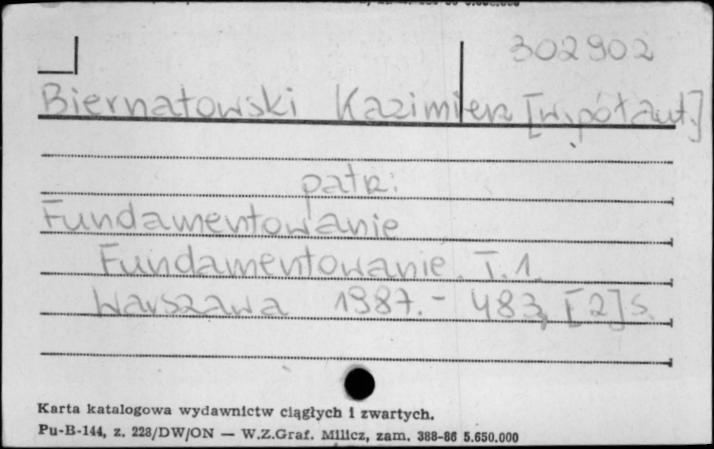 302902
Biernatowski Kazimierz [współaut.]
patrz:
Fundamentowanie
Fundamentowanie. T. 1.
Warszawa 1987. - 483, [2] s.
Karta katalogowa wydawnictw ciągłych i zwartych.
Pu-B-144, z. 228/DW/ON — W.Z.Graf. Milicz, zam. 388-86 5.650.000